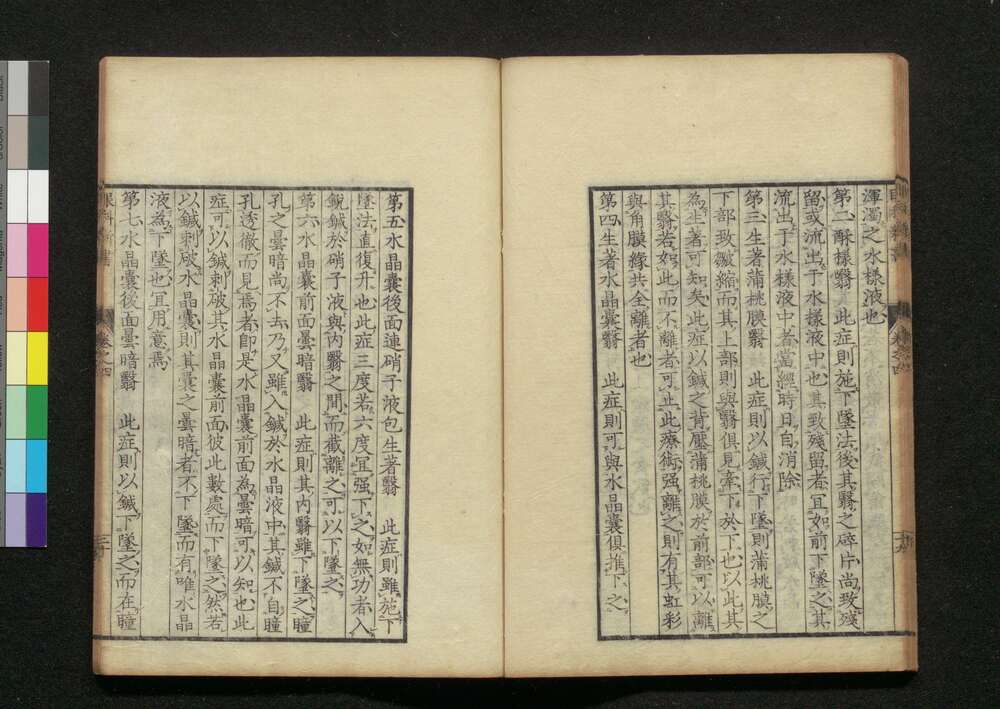 渾濁之水樣液也
第二酥樣翳 此症則施下墜法後其翳之碎片尚致殘
留或流出于水樣液中也其致殘留者宜如前下墜之其
流出于水樣液中者當經時日自消除
第三生著蒲桃膜翳 此症則以鍼行下墜則蒲桃膜之
下部致皺縮而其上部則與翳俱見牽下於下也以此其
為生著可知矣此症以鍼之背壓蒲桃膜於前部可以離
其翳若如此而不離者可止此療術强離之則有其虹彩
與角膜緣共全離者也
第四生著水晶囊翳 此症則可與水晶囊俱推下之
眼科新書 卷之四 十九
第五水晶囊後面連硝子液包生著翳 此症則雖施下
墜法直復升也此症三度若六度宜强下之如無功者入
銳鍼於硝子液與內翳之間而截離之可以下墜之
第六水晶囊前面曇暗翳 此症則其內翳雖下墜之瞳
孔之曇暗尚不去乃又雖入鍼於水晶液中其鍼不自瞳
孔透徹而見焉者卽是水晶囊前面為曇暗可以知也此
症可以鍼刺破其水晶囊前面彼此數處而下墜之然若
以鍼刺破水晶囊則其囊之曇暗者不下墜而有唯水晶
液為下墜也宜用意焉
第七水晶囊後面曇暗翳 此症則以鍼下墜之而在瞳
眼科新書 卷之四